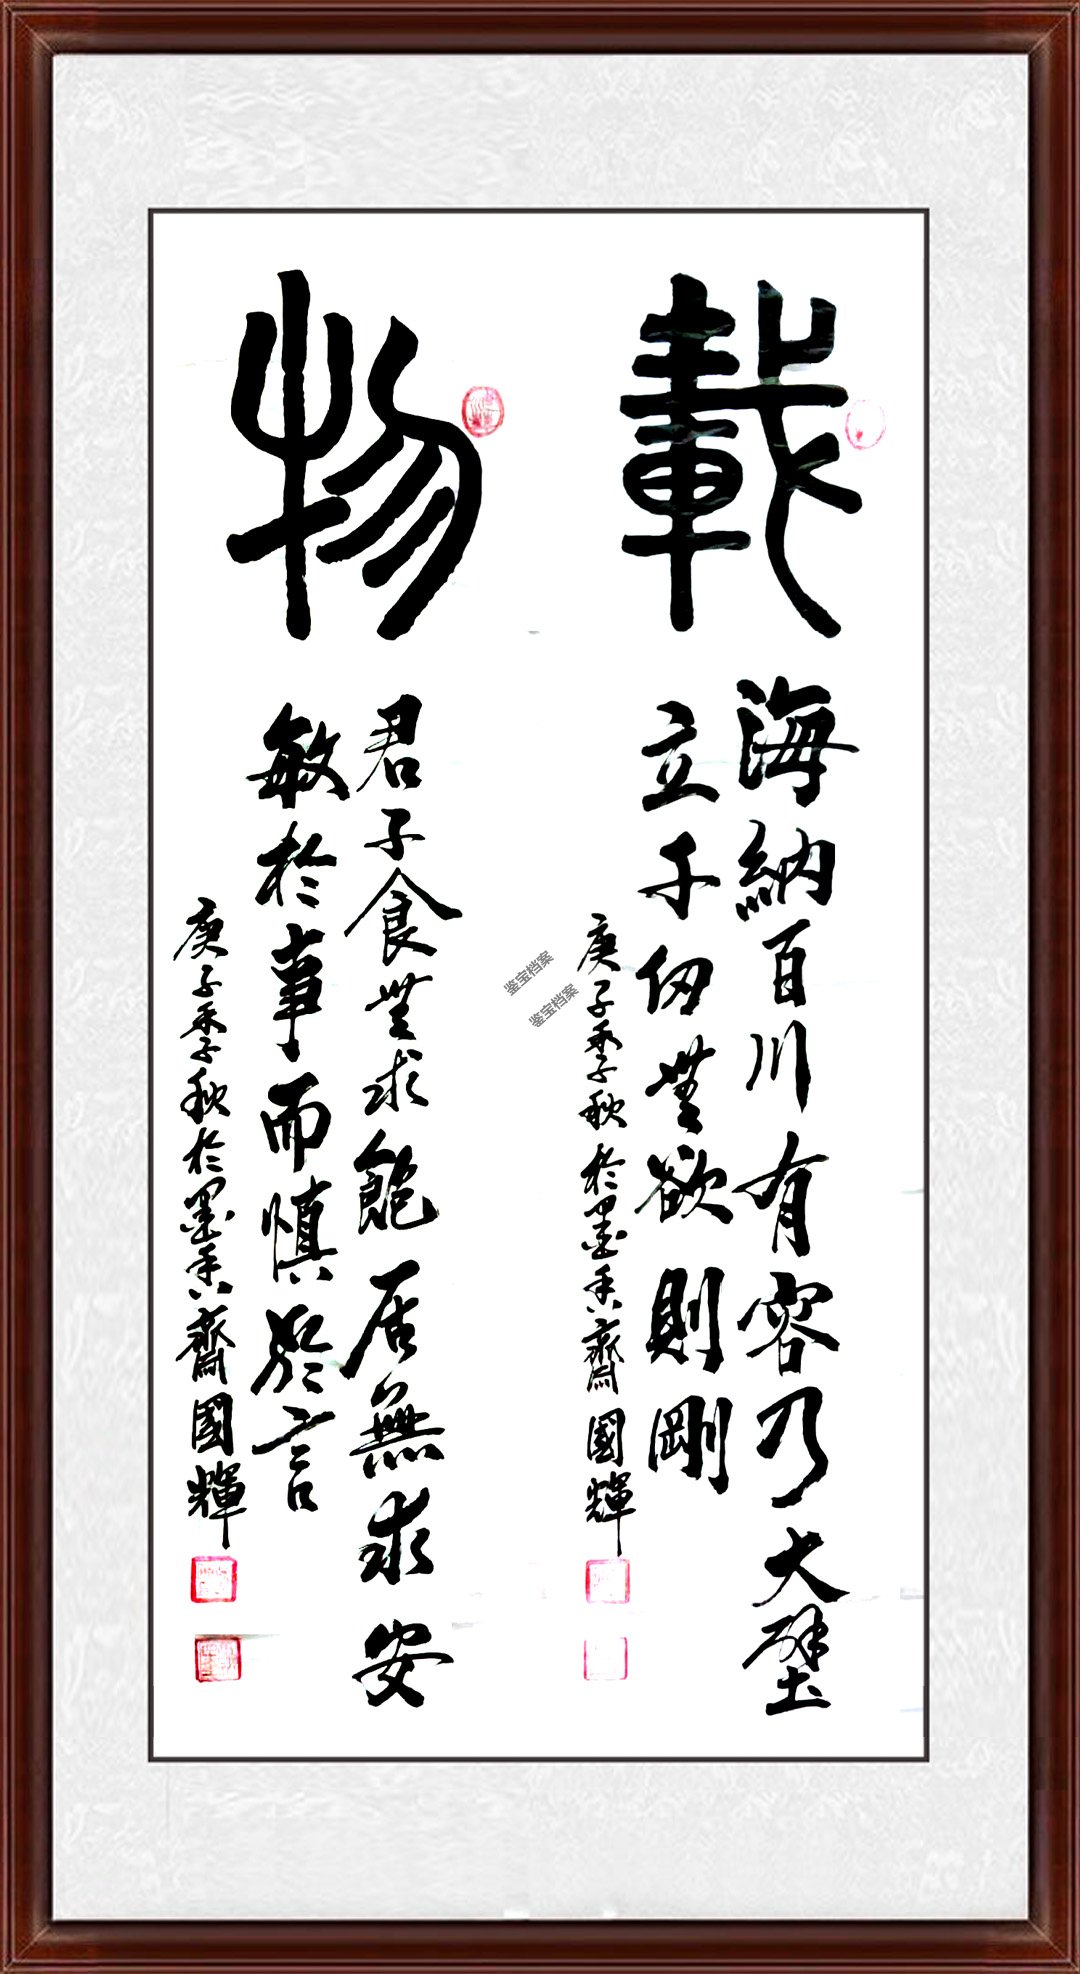 載
海納百川有容乃大壁
立千仞無欲則剛
庚子季秋於墨香齋國輝
物
君子食無求飽居無求安
敏於事而慎於言
庚子季秋於墨香齋國輝
鉴宝档案
鉴宝档案